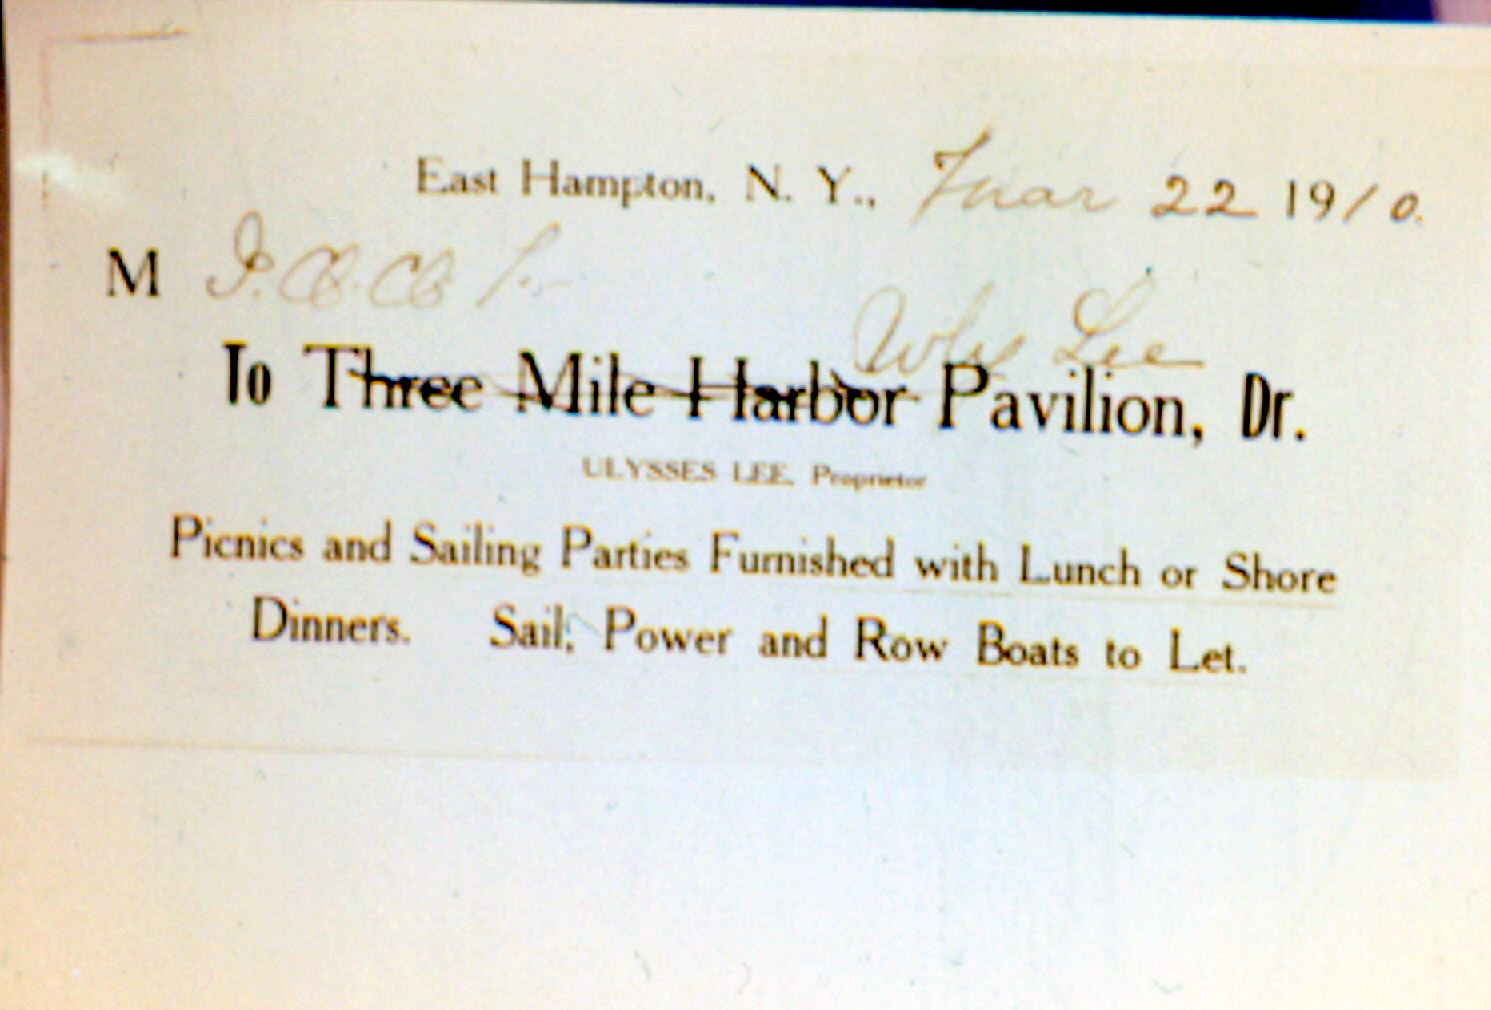 East Hampton, N. Y., Mar 22 1910.
M
Ulys Lee
To Three Mile Harbor Pavilion, Dr.
ULYSSES LEE, Proprietor
Picnics and Sailing Parties Furnished with Lunch or Shore
Dinners. Sail, Power and Row Boats to Let.